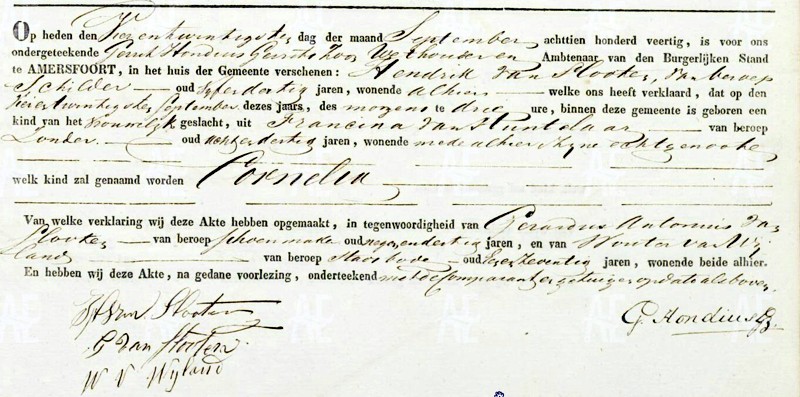 Op heden den Vierentwintigsten dag der maand September achttien honderd veertig, is voor ons
ondergeteekende Gerrit Hondius Gerritszoon Wethouder en Ambtenaar van den Burgerlijken Stand
te AMERSFOORT, in het huis der Gemeente verschenen: Hendrik van Slooten, van beroep
Schilder oud vijfendertig jaren, wonende alhier welke ons heeft verklaard, dat op den
Vierentwintigsten September dezes jaars, des morgens te drie ure, binnen deze gemeente is geboren een
kind van het vrouwelijk geslacht, uit Francina van van beroep
Zonder oud achtendertig jaren, wonende mede alhier zijne echtgenoote
welk kind zal genaamd worden Cornelia
Van welke verklaring wij deze Akte hebben opgemaakt, in tegenwoordigheid van Gerardus Antonius van
Slooten van beroep schoenmaker oud negenendertig jaren, en van Wouter van Wij
land van beroep Stads bode oud jaren, wonende beide alhier.
En hebben wij deze Akte, na gedane voorlezing, onderteekend met de Comparant en getuigen op dato als boven.
H van Slooten
G van Slooten
W V Wyland
G. Hondius Gz.